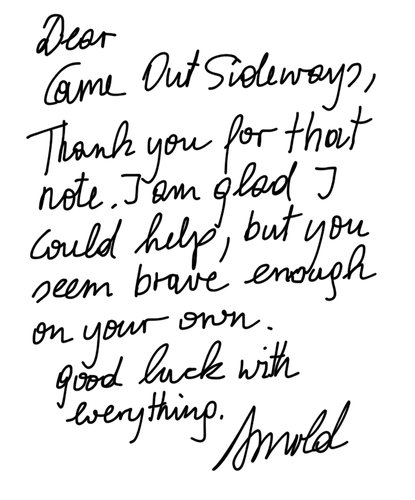 Dear
Came Out Sideways,
Thank you for that
note. I am glad I
could help, but you
seem brave enough
on your own.
good luck with
everything.
Arnold